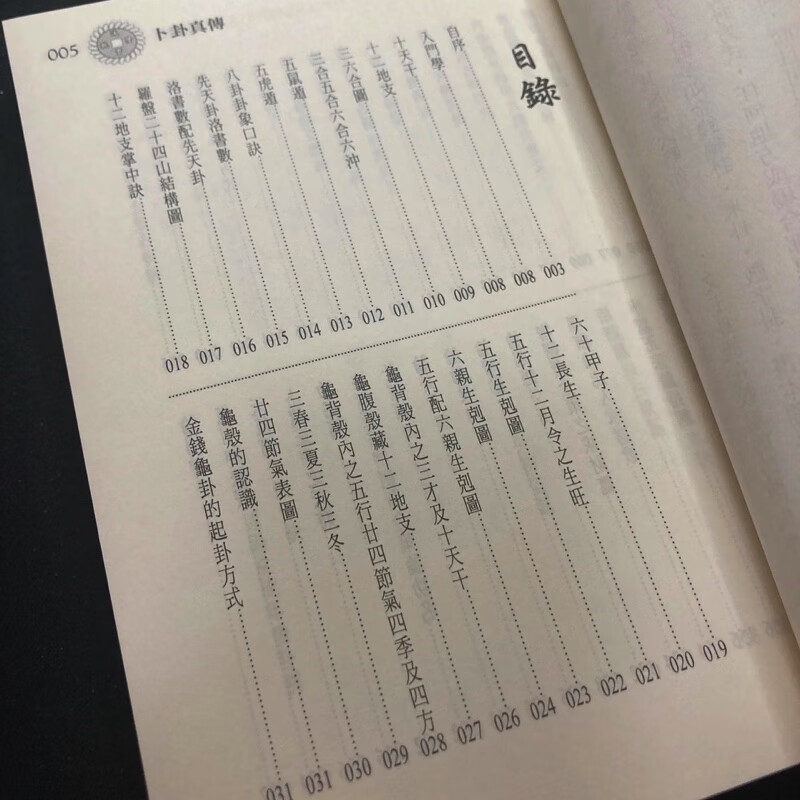 卜卦真傳
005
目錄
自序 003
入門學 008
十天干 008
十二地支 009
三六合圖 010
三合五合六合六沖 011
五鼠遁 012
五虎遁 013
八卦卦象口訣 014
先天卦洛書數 015
洛書數配先天卦 016
羅盤二十四山結構圖 017
十二地支掌中訣 018
六十甲子 019
十二長生 020
五行十二月令之生旺 021
五行生剋圖 022
六親生剋圖 023
五行配六親生剋圖 024
龜背殼內之三才及十天干 026
龜腹殼藏十二地支 027
龜背殼內之五行廿四節氣四季及四方 028
三春三夏三秋三冬 029
廿四節氣表圖 030
龜殼的認識 031
金錢龜卦的起卦方式 031